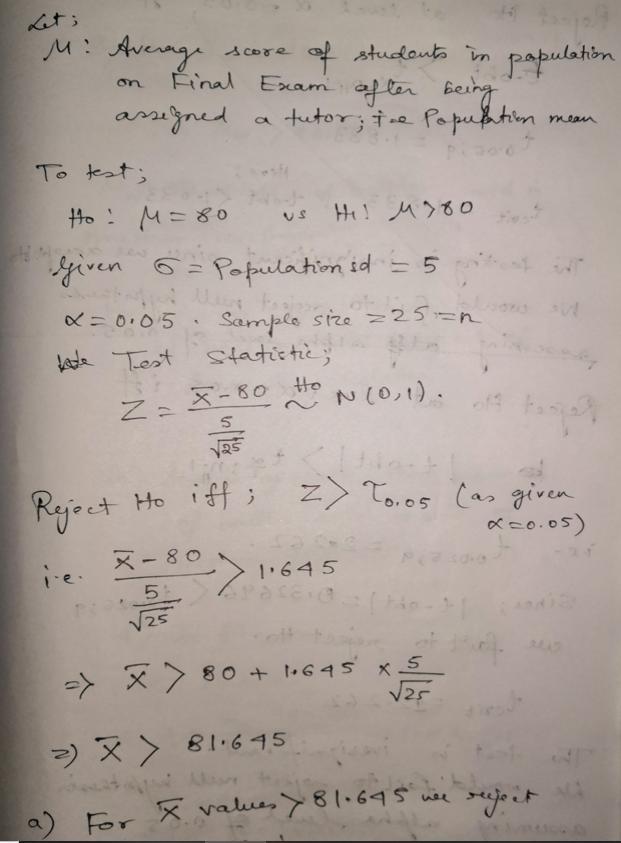 Let;
M: Average score of students in population
on Final Exam after being
assigned a tutor; i.e Population mean
To test;
H0: M = 80 vs H1: M > 80
Given σ = Population sd = 5
α = 0.05. Sample size = 25 = n
Test Statistic;
Z = (x̄ - 80) / (5/√25) ~ H0 N(0,1).
Reject H0 iff; Z > τ0.05 (as given
α = 0.05)
i.e. (x̄ - 80) / (5/√25) > 1.645
⇒ x̄ > 80 + 1.645 × 5/√25
⇒ x̄ > 81.645
a) For x̄ values > 81.645 we reject